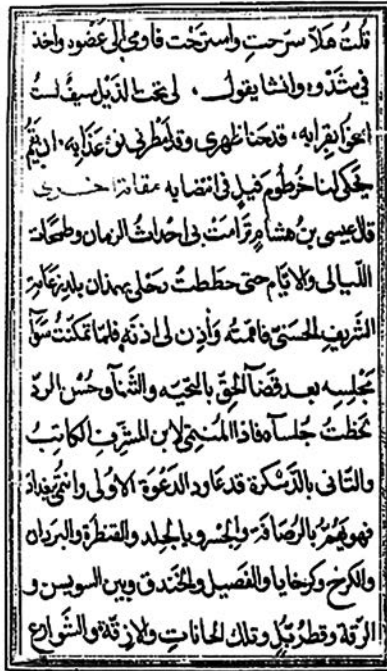 قلت هلا سرحت واسترحت فاومى الى عضوه واخذ
فى شذوه وانشا يقول، لى تحت الذيل سيف لست
بقرابه، قد حنا ظهرى وقد امطرنى من عذابه، ان يقم
يحكى لنا خرطوم فيل فى انتصابه مقامة اخرى
قال عيسى بن هشام ترامت بى احداث الزمان وطحات
الليالى والايام حتى حططت رحلى بهمذان بلد
الشريف الحسنى فاممته واذن لى اذنة فلما تمكنت
مجلسه بعد قضآ الحق بالتحيه والثنآ وحسن الرد
لحظت جلسآه فاذا المنتمى لابن المشرف الكاتب
والثانى بالدسكرة قد عاود الدعوة الاولى وانتمى ببغداد
فهو يهم بالرصافة والجسر وبالجلد والقنطرة والبردان
والكرخ وكرخايا والفصيل والخندق وبين السويسن و
الرقة وقطربل وتلك الحانات والازقة والشوارع